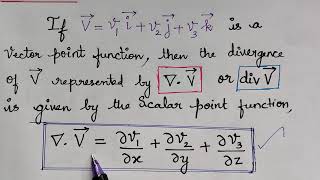 If V⃗ = v₁ i⃗ + v₂ j⃗ + v₃ k⃗ is a
vector point function, then the divergence
of V⃗ represented by ∇. V⃗ or div V⃗
is given by the scalar point function,
∇. V⃗ = ∂v₁/∂x + ∂v₂/∂y + ∂v₃/∂z